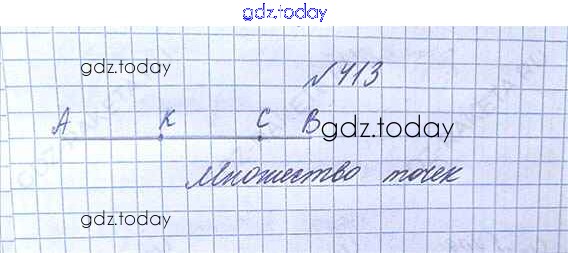 gdz.today
gdz.today
№413
A K C B gdz.today
Множество точек
gdz.today